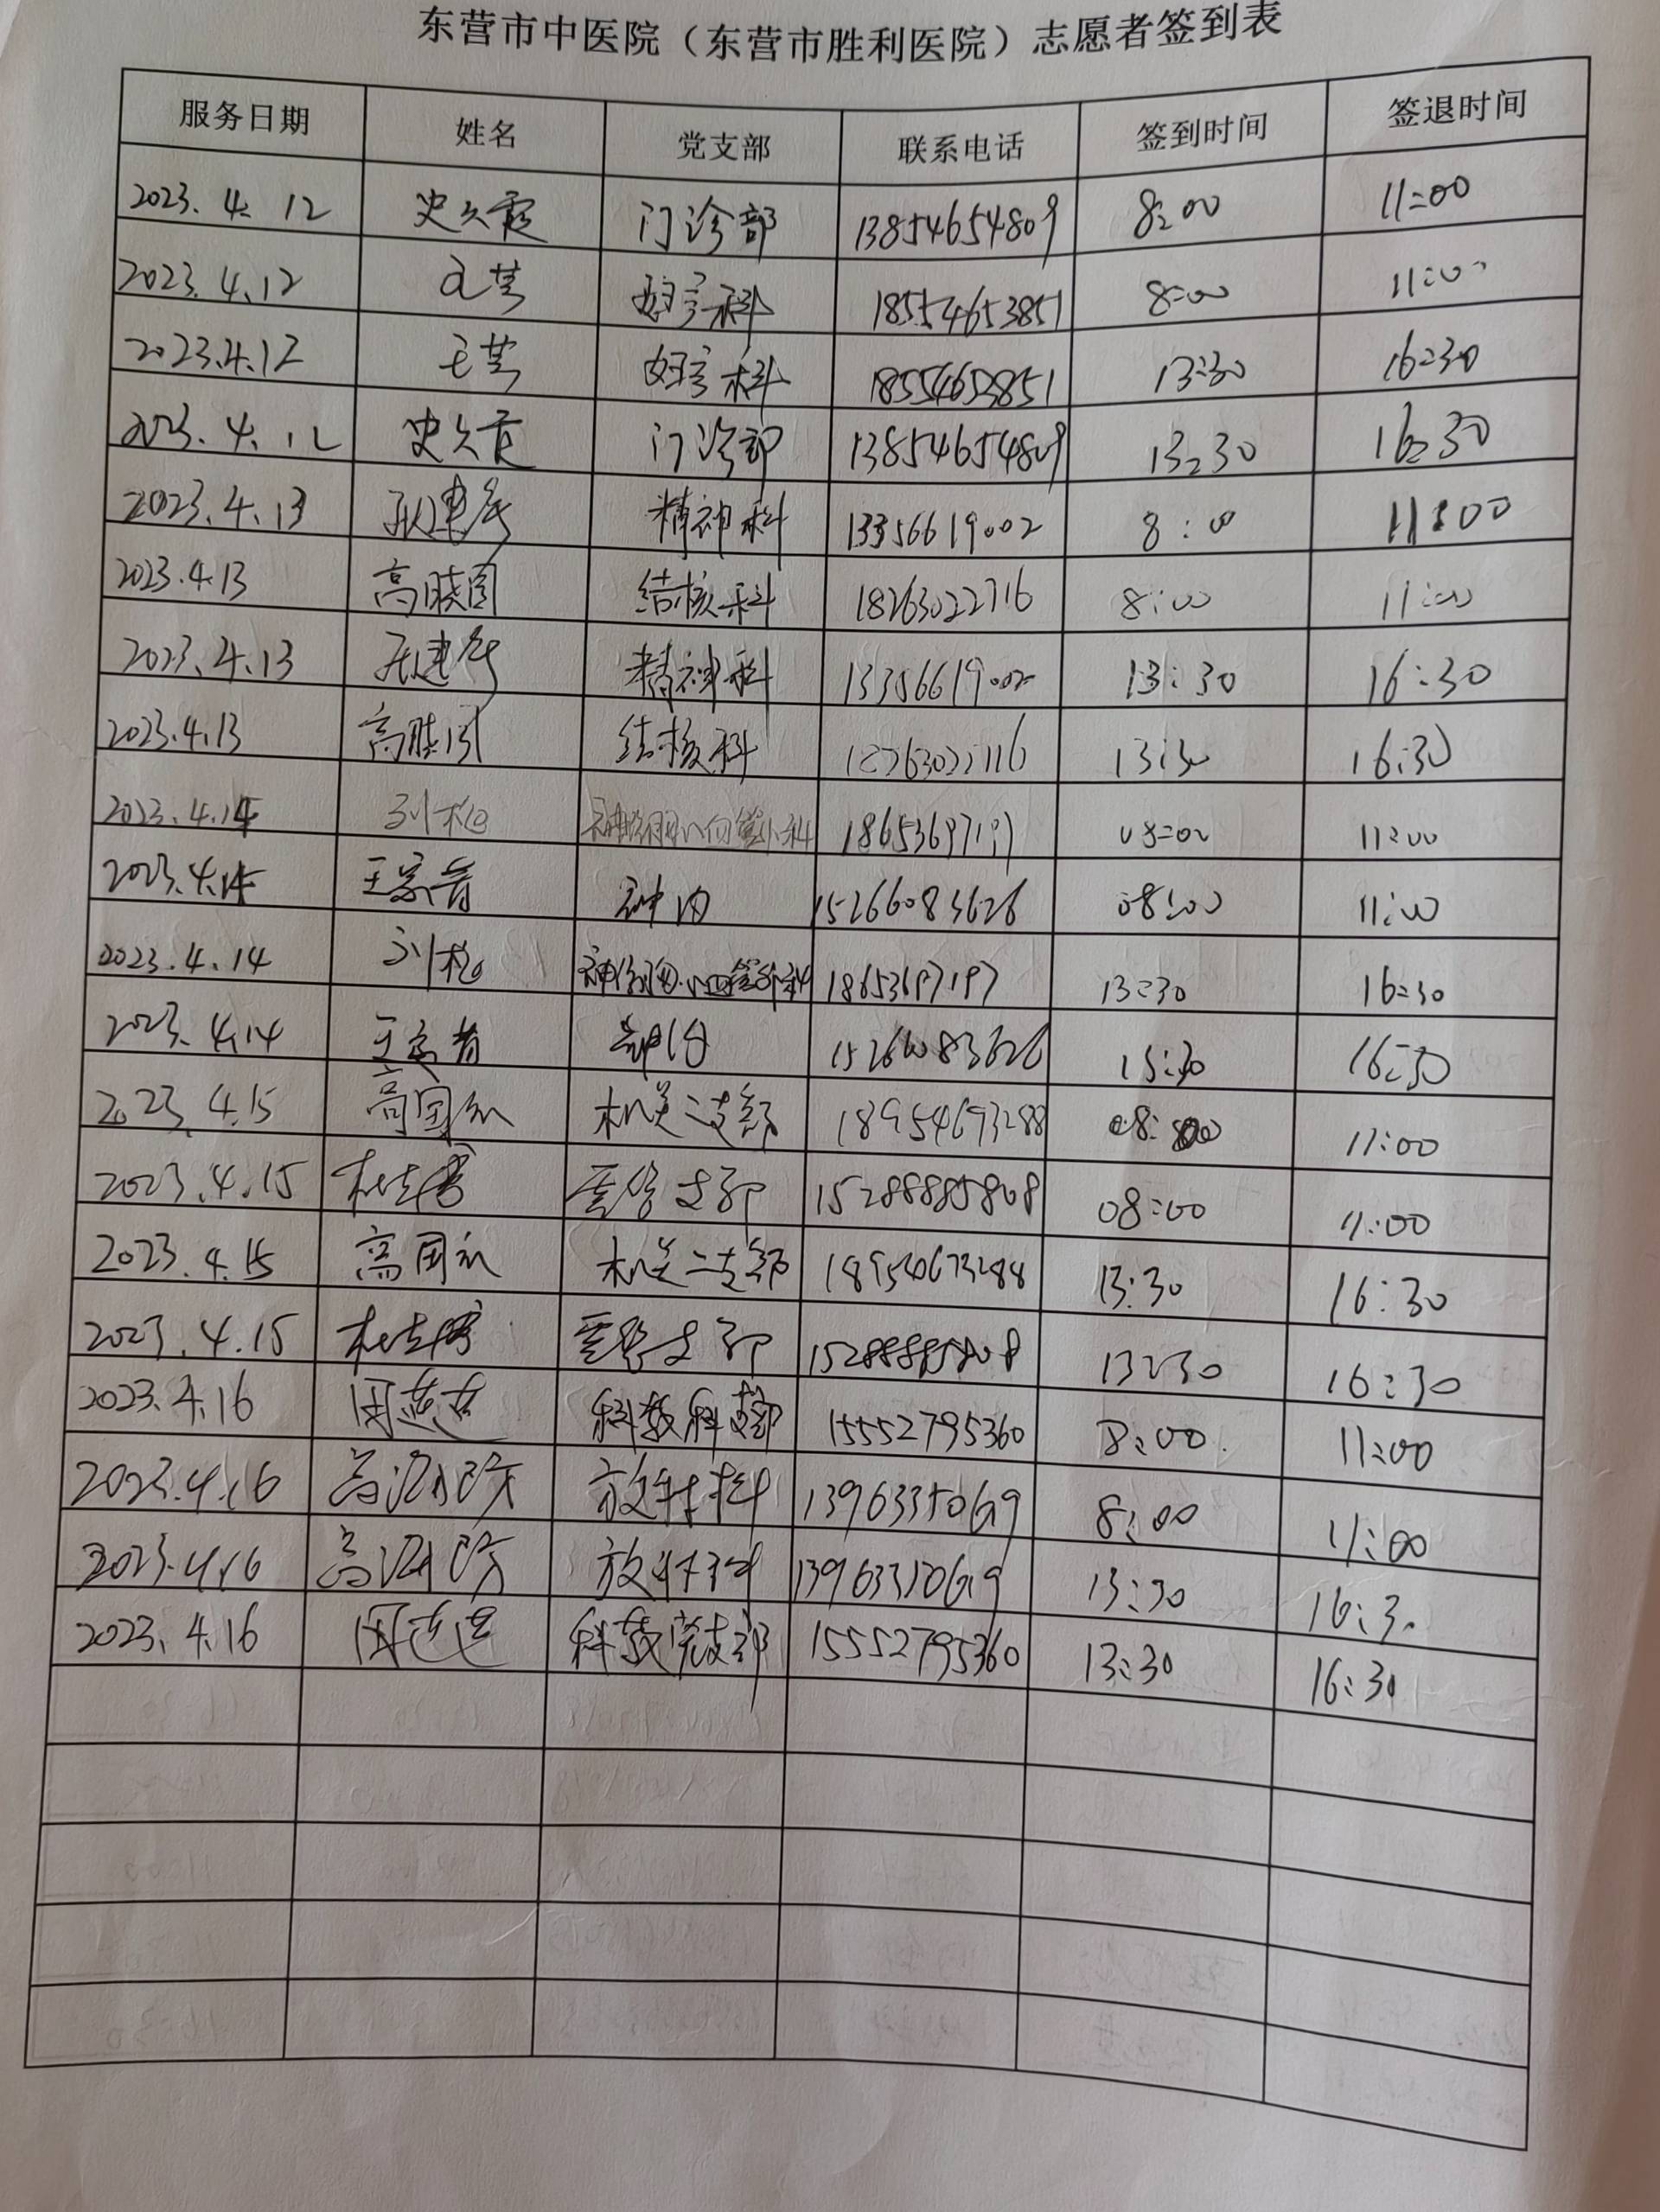 东营市中医院（东营市胜利医院）志愿者签到表
服务日期 姓名 党支部 联系电话 签到时间 签退时间
2023.4.12 史久霞 门诊部 13854654809 8:00 11:00
2023.4.12 科 18554653851 8:00 11:00
2023.4.12 王 科 18554653851 13:30 16:30
2023.4.12 史久霞 门诊部 13854654809 13:30 16:30
2023.4.13 精神科 13356619002 8:00 11:00
2023.4.13 高晓国 结核科 18263022716 8:00 11:00
2023.4.13 精神科 13356619002 13:30 16:30
2023.4.13 高 结核科 13:30 16:30
2023.4.14 刘松 18653697197 08:00 11:00
2023.4.14 王 神内 15266083626 08:00 11:00
2023.4.14 刘松 18653697197 13:30 16:30
2023.4.14 王 神内 15266083626 13:30 16:30
2023.4.15 高国 机关二支部 18954673288 08:00 11:00
2023.4.15 支部 15288885808 08:00 11:00
2023.4.15 高国 机关二支部 18954673288 13:30 16:30
2023.4.15 支部 15288885808 13:30 16:30
2023.4.16 周 科教科支部 15552795360 8:00 11:00
2023.4.16 高 放射科 13963350619 8:00 11:00
2023.4.16 高 放射科 13963350619 13:30 16:30
2023.4.16 周 科教党支部 15552795360 13:30 16:30